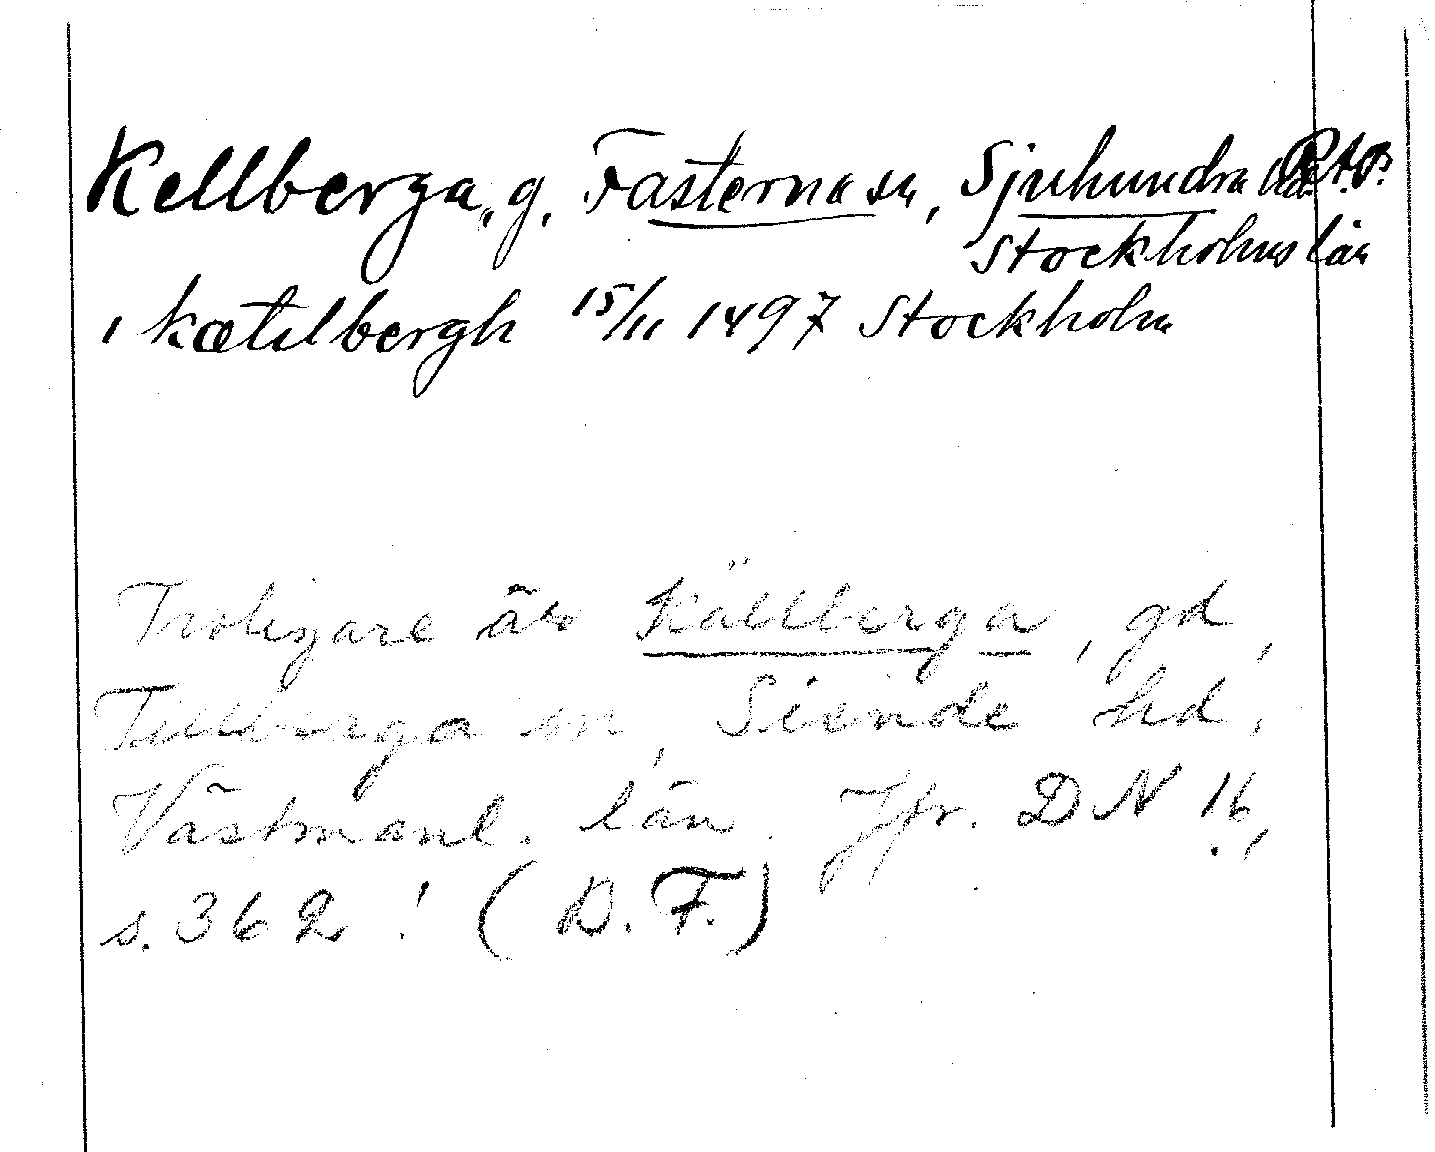 Kellberga, g, Fasterna sn, Sjuhundra hd RAP.
Stockholms län
i kætilbergh 15/11 1497 Stockholm
Troligare är Källberga, gd,
Tillberga sn, Siende hd,
Västmanl. län. Jfr. DN 16,
s. 362! (D.F.)